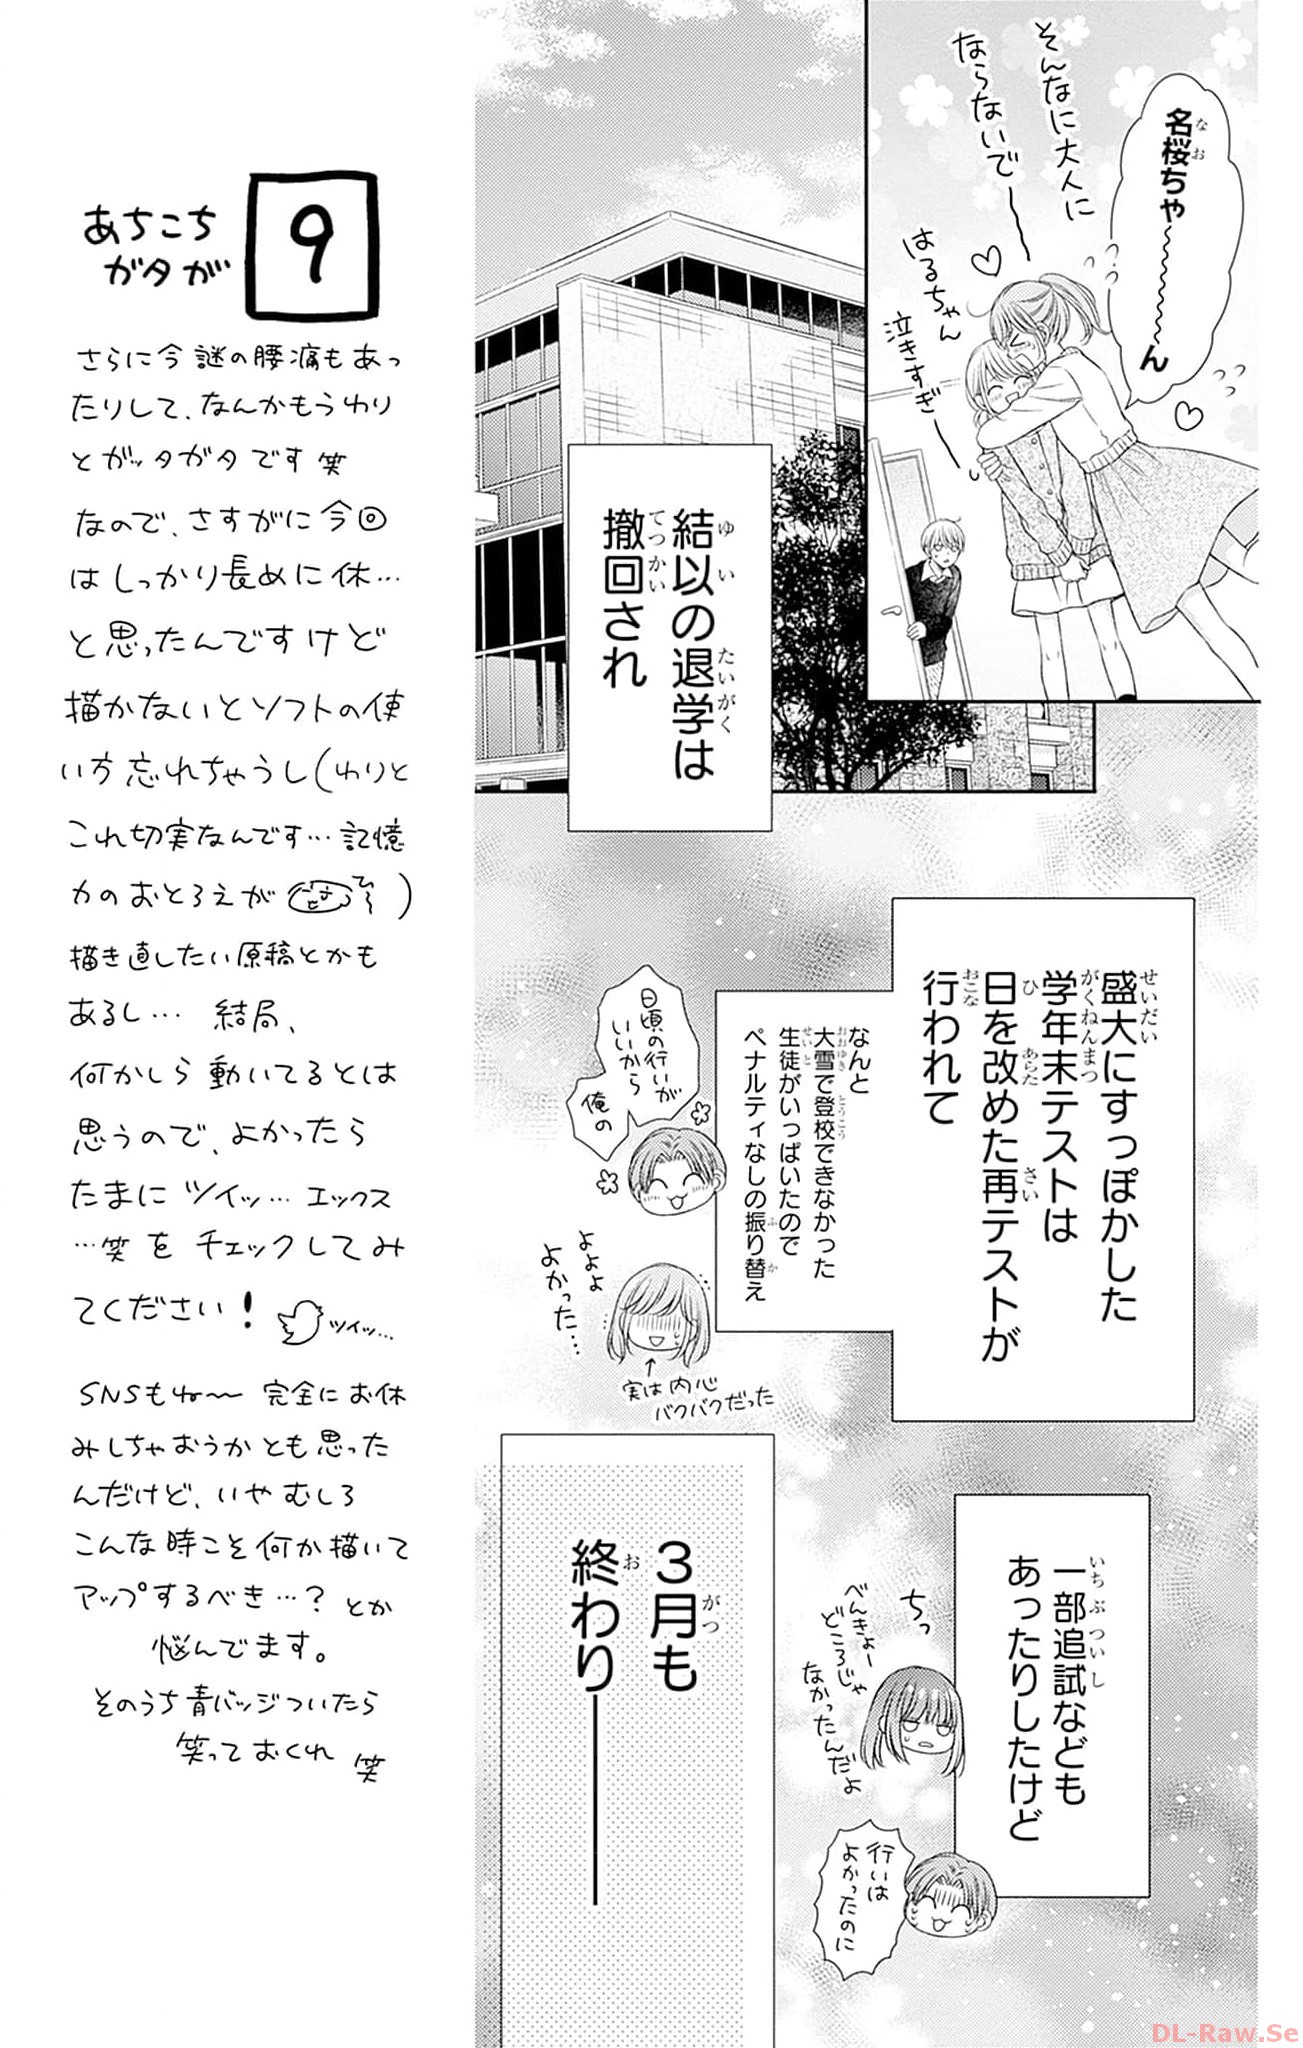 名桜ちゃ～～～ん
そんなに大人に
ならないでー
はるちゃん
泣きすぎ
結以の退学は
撤回され
盛大にすっぽかした
学年末テストは
日を改めた再テストが
行われて
なんと
大雪で登校できなかった
生徒がいっぱいいたので
ペナルティなしの振り替え
日頃の行いが
いいから
俺の
よよよ
よかった…
実は内心
バクバクだった
一部追試なども
あったりしたけど
ちっ
べんきょー
どころじゃ
なかったんだよ
行いは
よかったのに
3月も
終わり――
9
あちこち
ガタが
さらに今謎の腰痛もあっ
たりして、なんかもうわり
とガッタガタです笑
なので、さすがに今回
はしっかり長めに休…
と思ったんですけど
描かないとソフトの使
い方忘れちゃうし(わりと
これ切実なんです…記憶
力のおとろえが )
描き直したい原稿とかも
あるし… 結局、
何かしら動いてるとは
思うので、よかったら
たまにツイッ…エックス
…笑をチェックしてみ
てください!
ツイッ…
SNSもね〜 完全にお休
みしちゃおうかとも思った
んだけど、いやむしろ
こんな時こそ何か描いて
アップするべき…?とか
悩んでます。
そのうち青バッジついたら
笑っておくれ 笑
DL-Raw.Se